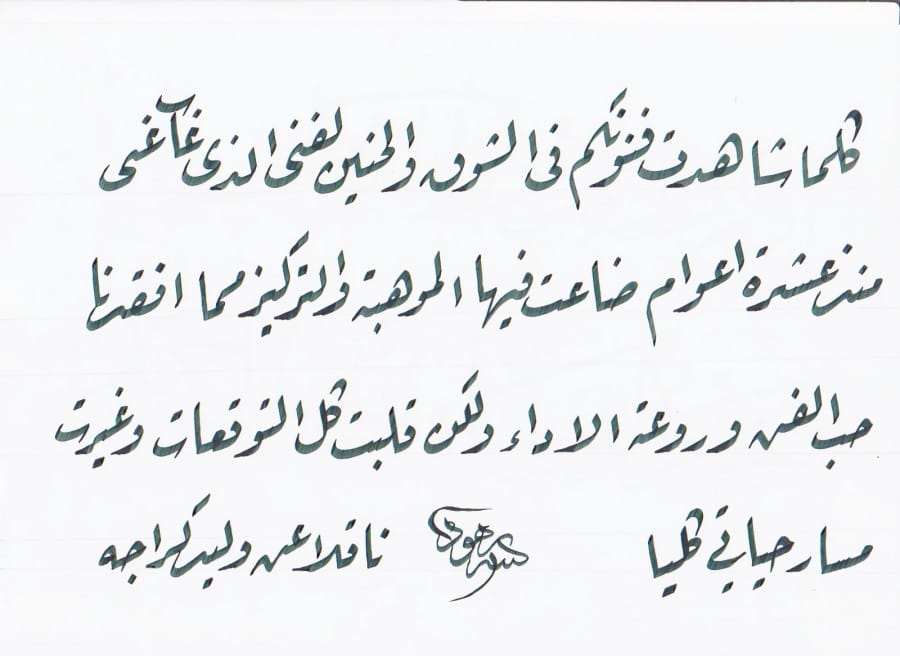 كلما شاهدت فنونكم في الشوق والحنين لفني الذي غاب عني
منذ عشرة اعوام ضاعت فيها الموهبة والتركيز مما افقدنا
حب الفن وروعة الاداء ولكن قلبت كل التوقعات وغيرت
مسار حياتي كليا ناقلا عن وليد كراجه